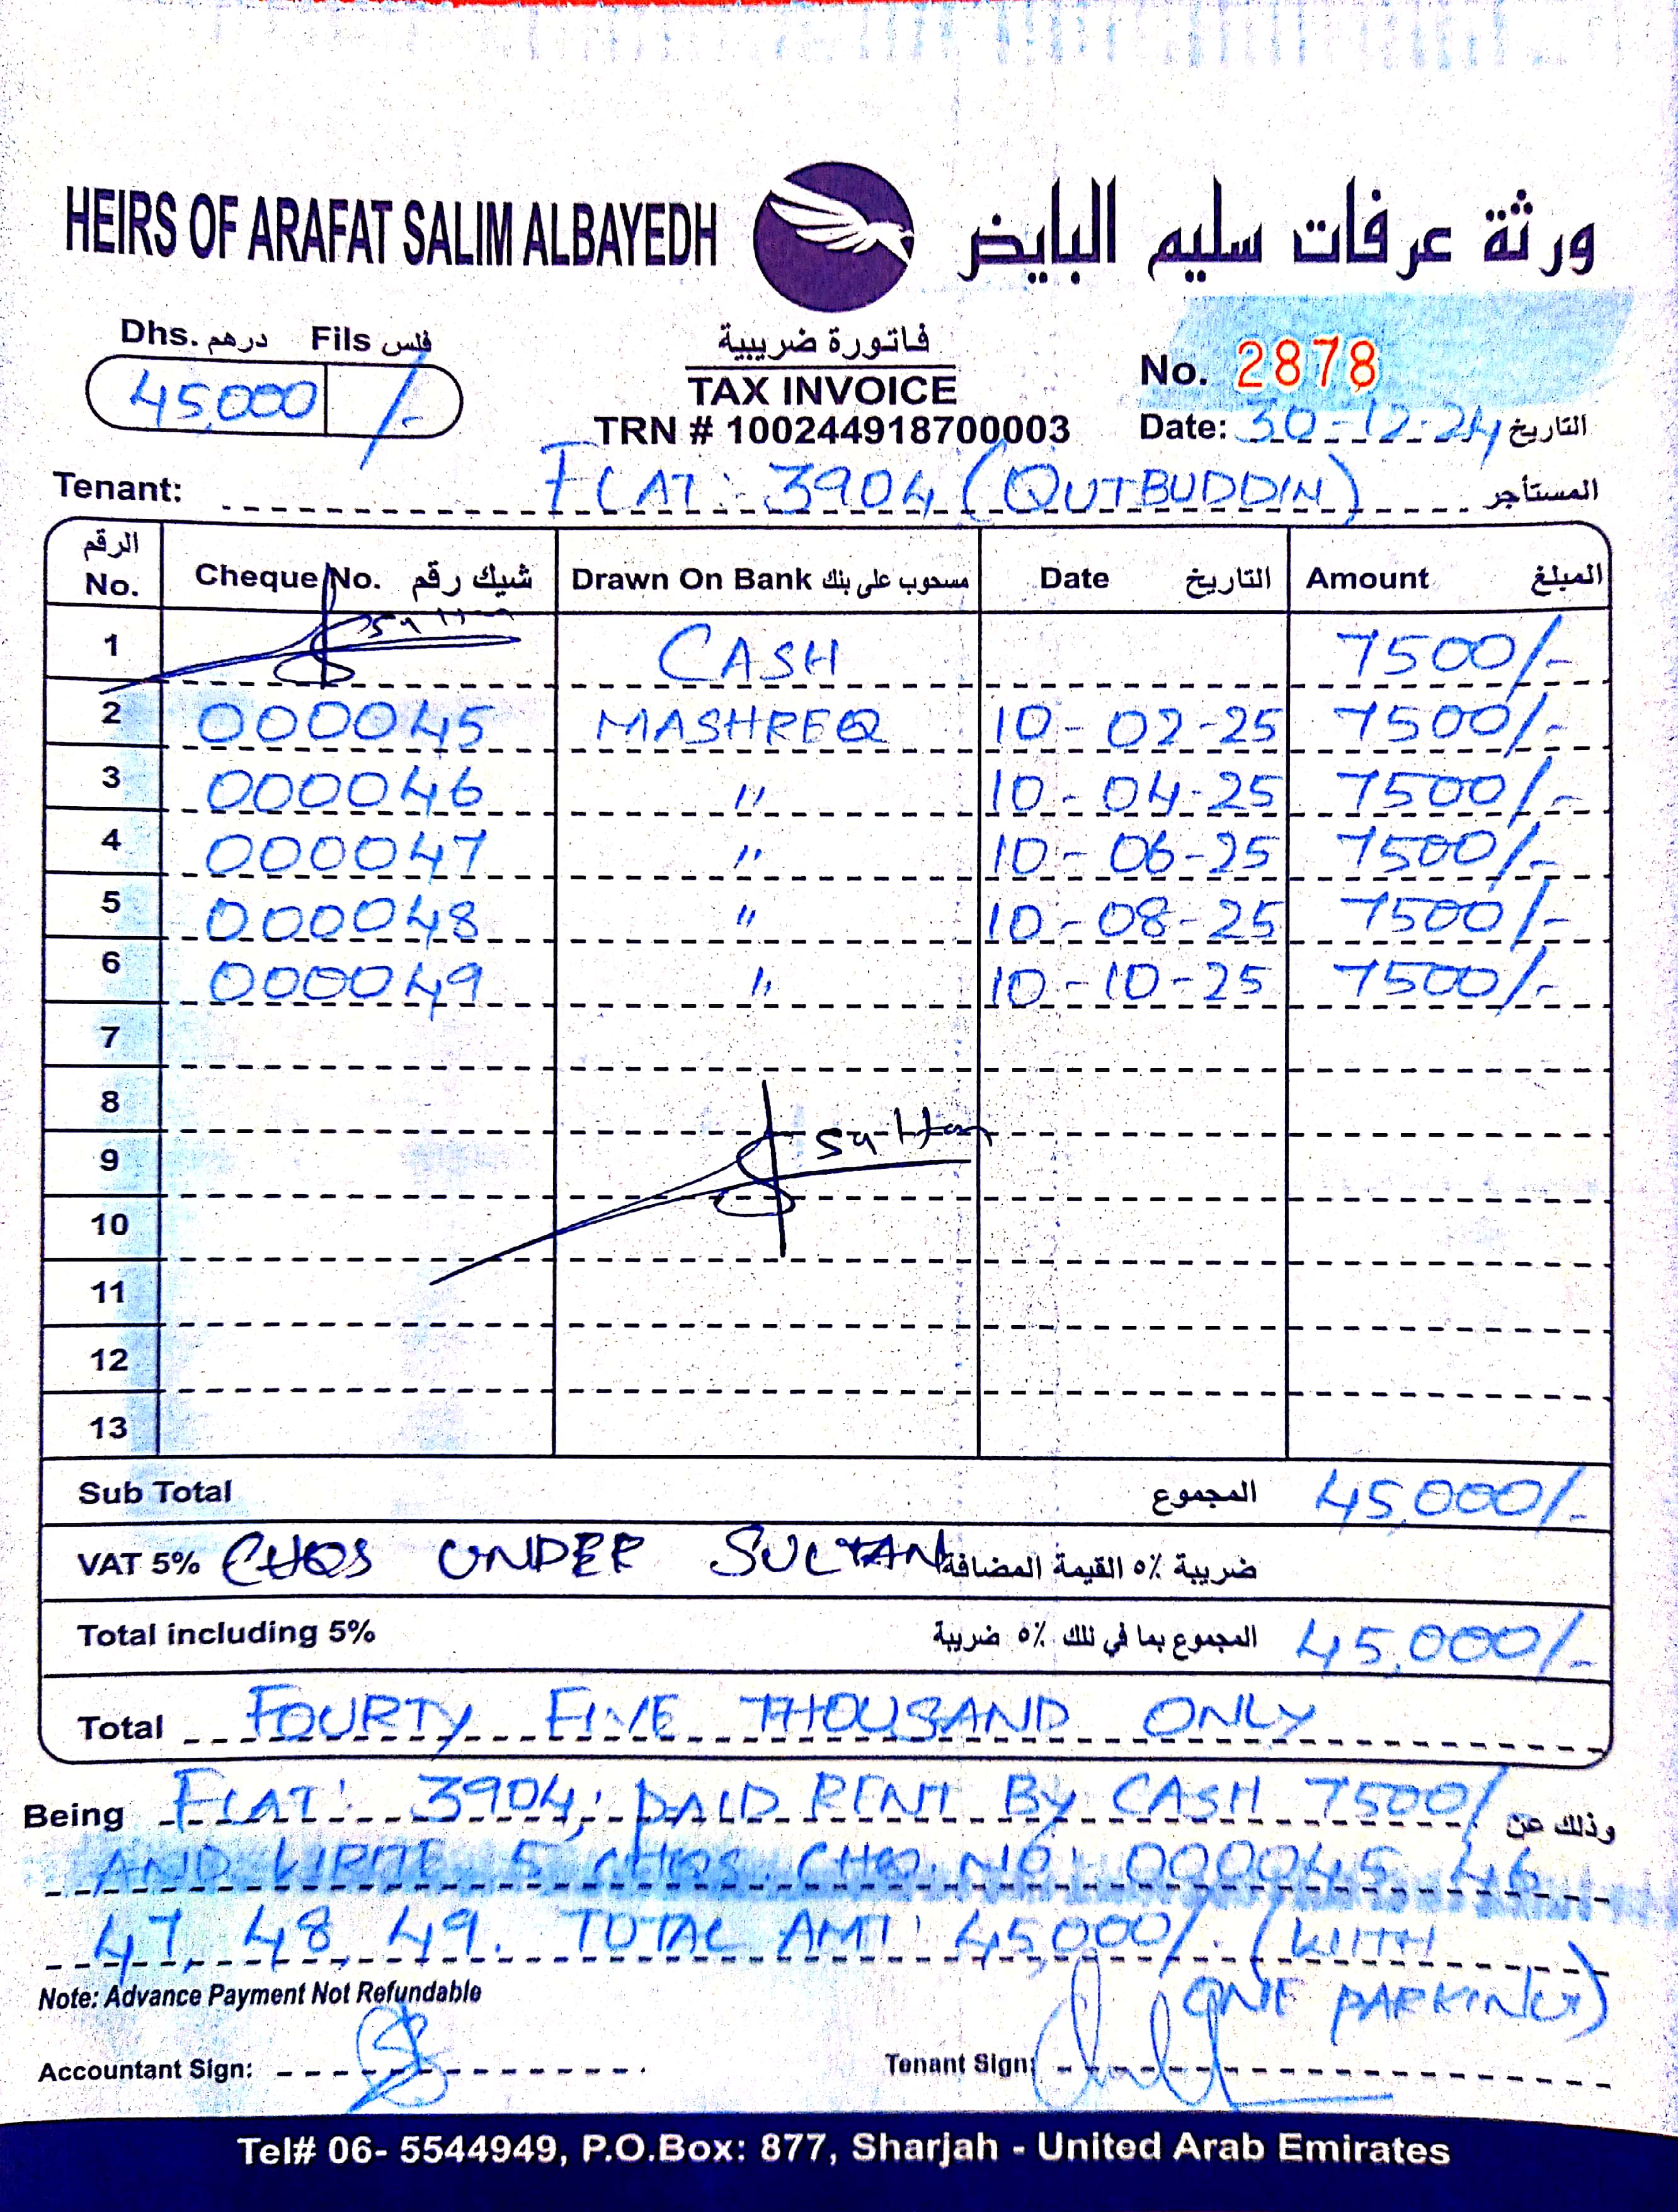 HEIRS OF ARAFAT SALIM ALBAYEDH ورثة عرفات سليم البايض
Dhs. درهم Fils فلس
45,000 /-
فاتورة ضريبية
TAX INVOICE
TRN # 100244918700003
No. 2878
Date: 30-12-24 التاريخ
Tenant: FLAT: 3904 (QUTBUDDIN) المستأجر
الرقم No. Cheque No. شيك رقم Drawn On Bank مسحوب على بنك Date التاريخ Amount المبلغ
1 CASH 7500/-
2 000045 MASHREQ 10-02-25 7500/-
3 000046 " 10-04-25 7500/-
4 000047 " 10-06-25 7500/-
5 000048 " 10-08-25 7500/-
6 000049 " 10-10-25 7500/-
7
8
9
10
11
12
13
Sub Total المجموع 45,000/-
VAT 5% CHQS UNDER SULTAN ضريبة ٥٪ القيمة المضافة
Total including 5% المجموع بما في ذلك ٥٪ ضريبة 45,000/-
Total FOURTY FIVE THOUSAND ONLY
Being FLAT: 3904, PAID RENT BY CASH 7500/ وذلك عن
AND 5 CHQS. CHQ. NO: 000045, 46
47, 48, 49. TOTAL AMT: 45,000/- (WITH
ONE PARKING)
Note: Advance Payment Not Refundable
Accountant Sign: Tenant Sign:
Tel# 06- 5544949, P.O.Box: 877, Sharjah - United Arab Emirates